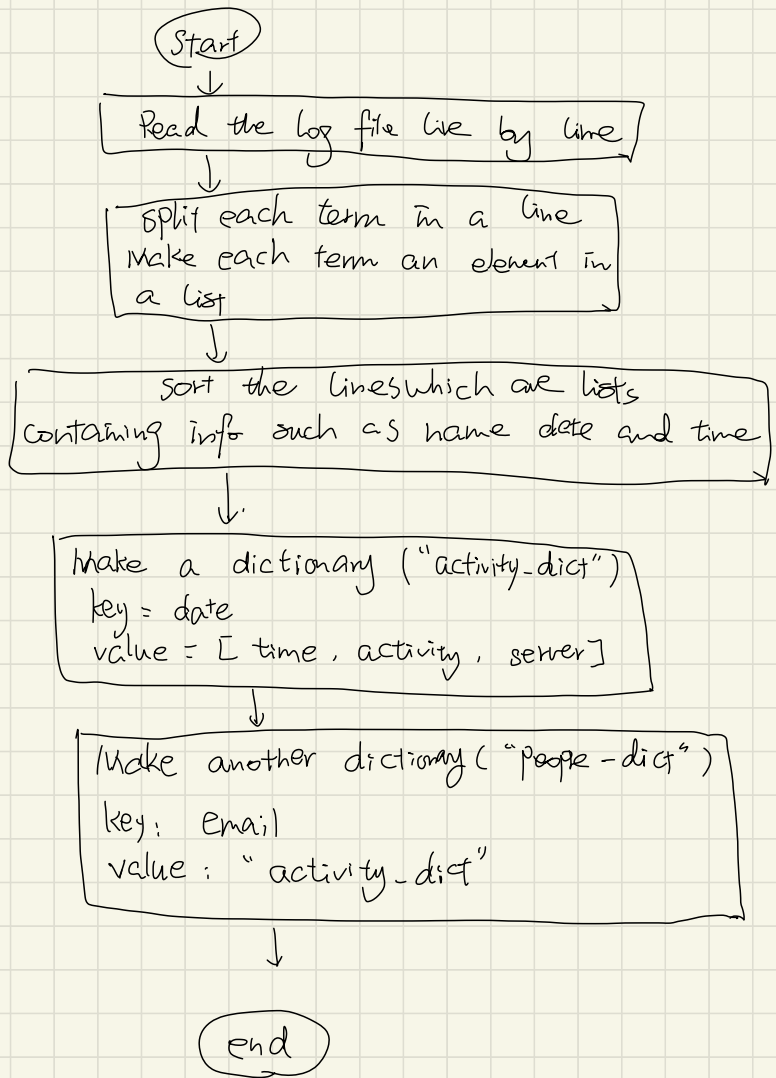 Start
Read the log file live by line
split each term in a line
Make each term an element in
a list
sort the lines which are lists
containing info such as name date and time
Make a dictionary ("activity_dict")
key = date
value = [ time , activity , server ]
Make another dictionary ( "peope-dict" )
key: email
value : "activity_dict"
end